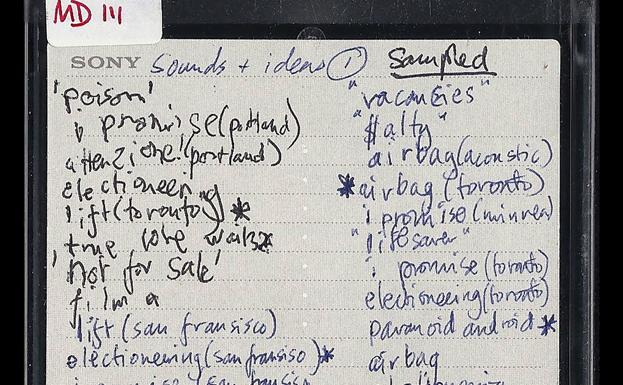 MD 111
SONY sounds + ideas ① sampled
'poison'
i promise (portland)
attenzione! (portland)
electioneering
lift (toronto) *
true love waits
'not for sale'
lift (san fransisco)
electioneering (sanfransiso) *
"vacancies"
"salty"
airbag (acoustic)
* airbag (toronto)
i promise (minnea)
"lifesaver"
i promise (toronto)
electioneering (toronto)
paranoid android *
airbag